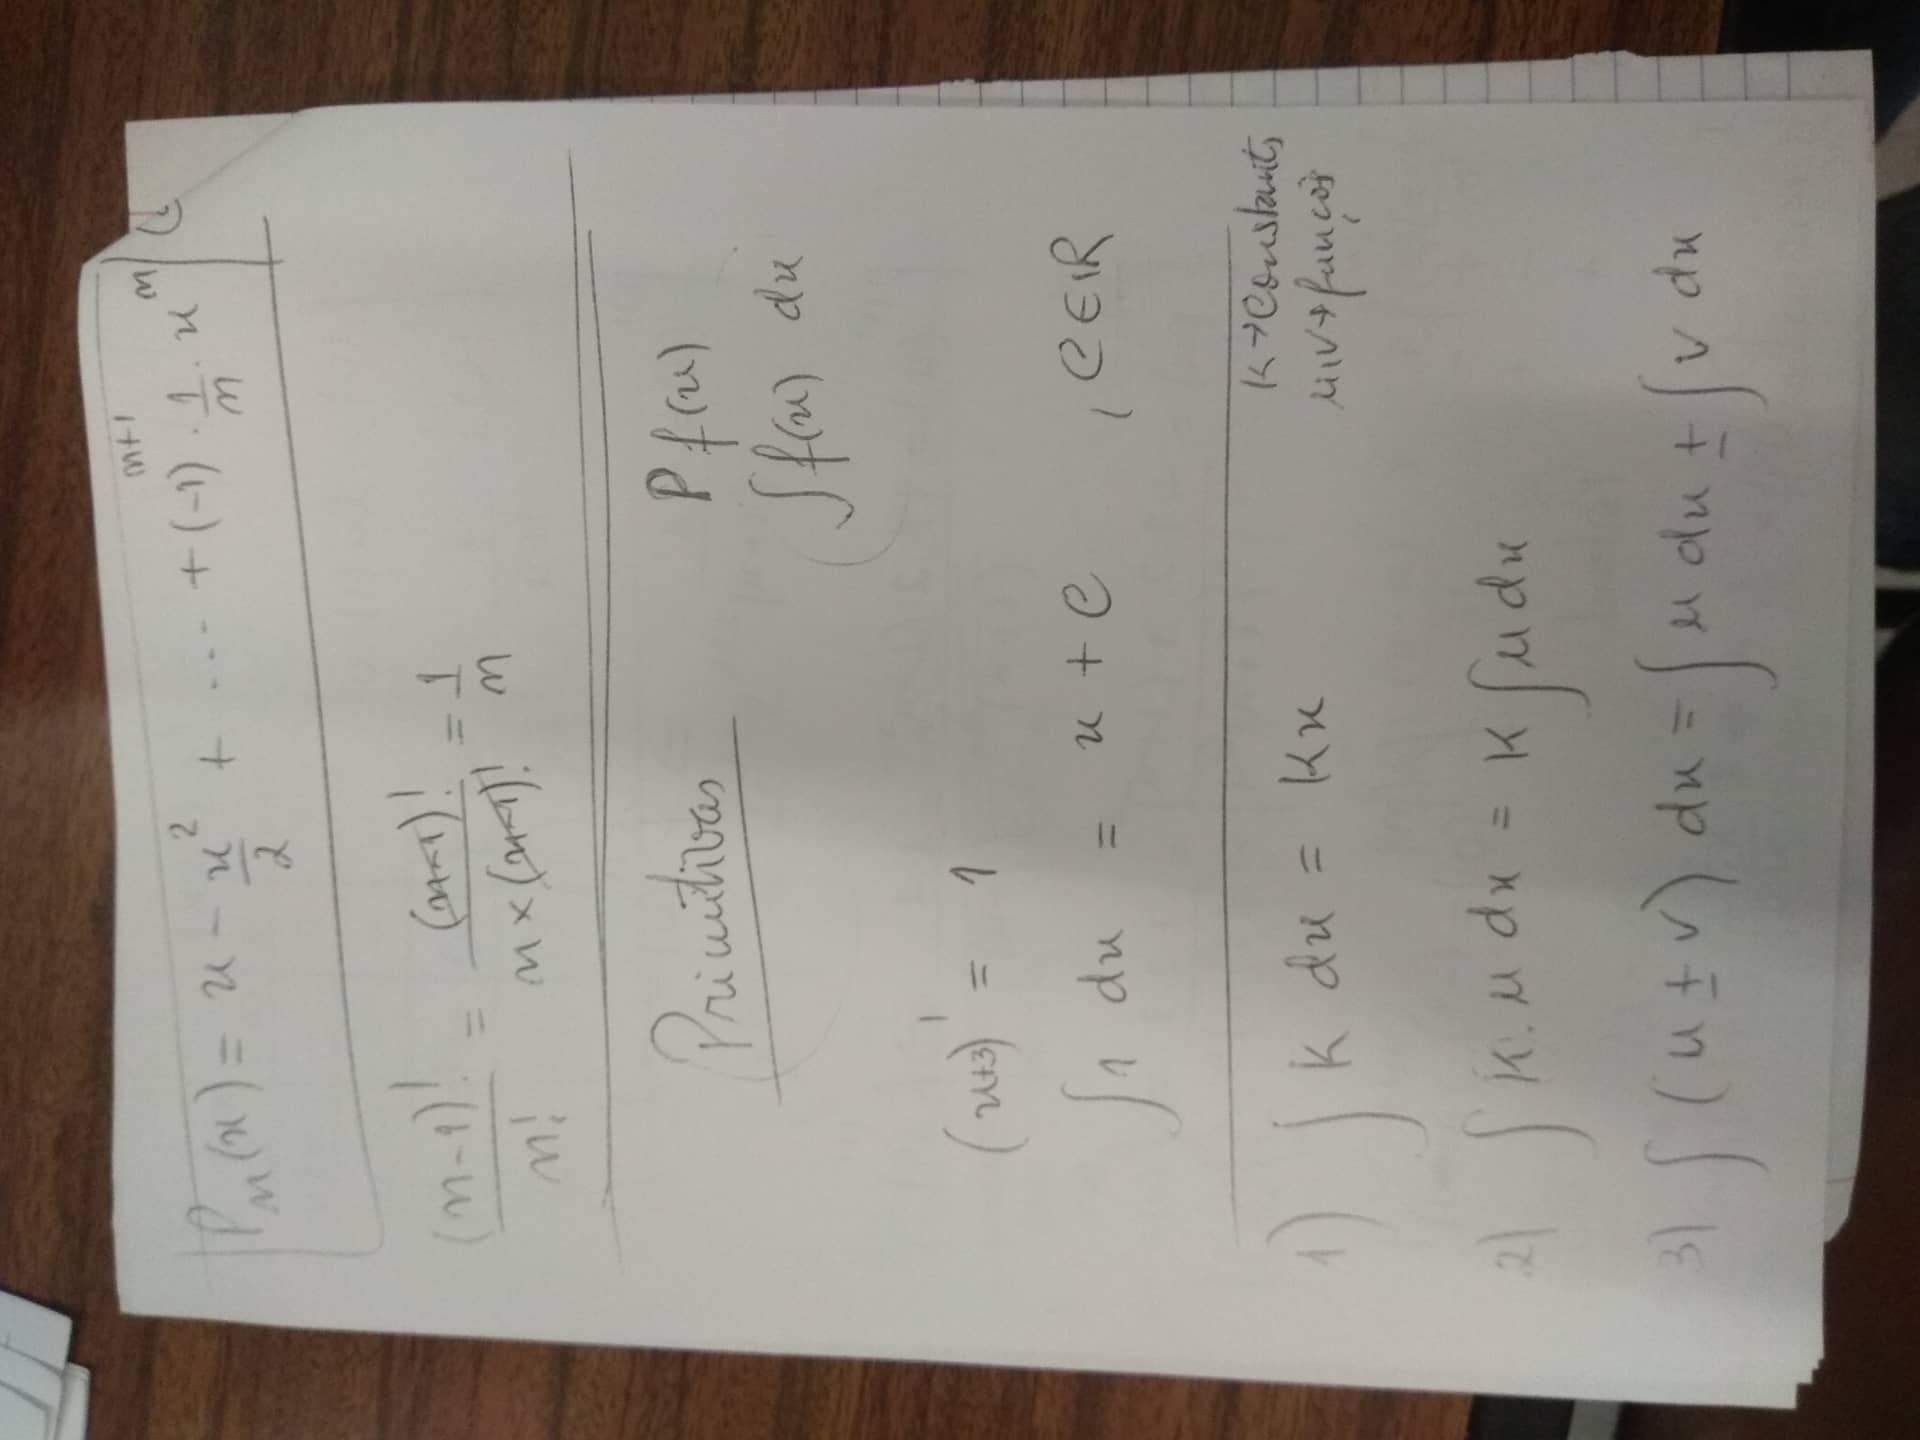 Pn(x) = x - x²/2 + ... + (-1)^(n+1) · 1/n · x^n
(n-1)!/n! = (n-1)!/(n×(n-1)!) = 1/n
Primitivas
P f(x)
∫f(x) dx
(x+3)' = 1
∫1 dx = x + C , C∈IR
K→Constante
u,v→funções
1) ∫ K dx = Kx
2) ∫ K.u dx = K ∫u dx
3) ∫ (u ± v) dx = ∫ u dx ± ∫ v dx